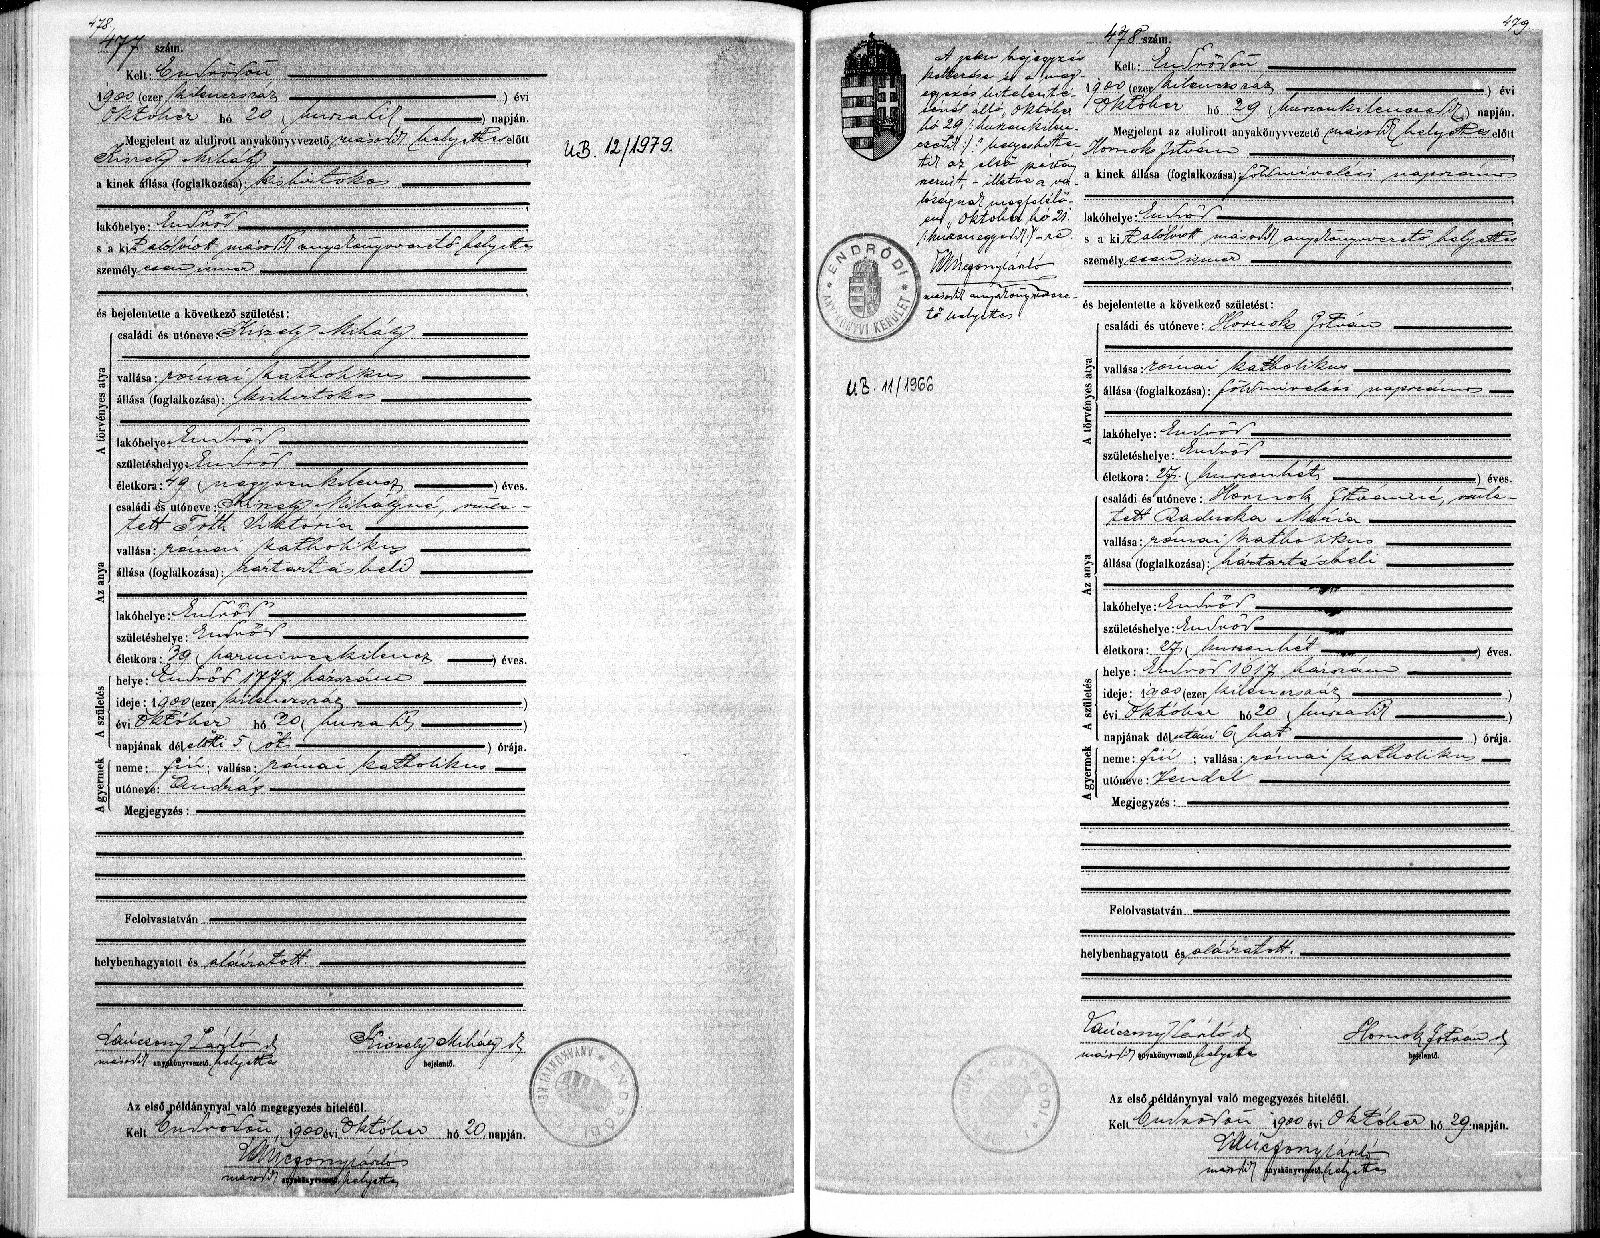 478
477 szám.
Kelt: Endrődön
1900 (ezer kilencszáz ) évi
Október hó 20 (huszadik ) napján.
Megjelent az alulirott anyakönyvvezető második helyettes előtt
Kiszely Mihály
a kinek állása (foglalkozása): kisbirtokos
lakóhelye: Endrőd
s a kit alólirott második anyakönyvvezető helyettes
személyesen ismer
és bejelentette a következő születést:
A törvényes atya
családi és utóneve: Kiszely Mihály
vallása: római katholikus
állása (foglalkozása): kisbirtokos
lakóhelye: Endrőd
születéshelye: Endrőd
életkora: 49 (negyvenkilencz ) éves.
Az anya
családi és utóneve: Kiszely Mihályné, szüle-
tett Tóth Viktória
vallása: római katholikus
állása (foglalkozása): háztartásbeli
lakóhelye: Endrőd
születéshelye: Endrőd
életkora: 39 (harminczkilencz ) éves.
A születés
helye: Endrőd 1777. házszám
ideje: 1900 (ezer kilenczszáz )
évi Október hó 20 (huszadik )
napjának délelőtti 5 (öt ) órája.
A gyermek
neme: fiú; vallása: római katholikus
utóneve: András
Megjegyzés:
Felolvastatván
helybenhagyatott és aláiratott.
László
Kiszely Mihály
második anyakönyvvezető helyettes
bejelentő.
Az első példánynyal való megegyezés hiteléül.
Kelt Endrődön, 1900 évi Október hó 20 napján.
második anyakönyvvezető helyettes
U.B. 12/1979.
479.
A jelen bejegyzés
október
hó 29
az első példány
október hó 21.
második anyakönyvveze-
tő helyettes
ENDRŐDI ANYAKÖNYVI KERÜLET
U.B. 11/1966
478 szám.
Kelt: Endrődön
1900 (ezer kilenczszáz ) évi
Október hó 29 (huszonkilenczedik) napján.
Megjelent az alulirott anyakönyvvezető második helyettes előtt
Hornok István
a kinek állása (foglalkozása): földmivelési napszámos
lakóhelye: Endrőd
s a kit alólirott második anyakönyvvezető helyettes
személyesen ismer
és bejelentette a következő születést:
A törvényes atya
családi és utóneve: Hornok István
vallása: római katholikus
állása (foglalkozása): földmivelési napszámos
lakóhelye: Endrőd
születéshelye: Endrőd
életkora: 27 (huszonhét ) éves.
Az anya
családi és utóneve: Hornok Istvánné, szüle-
tett Raducka Mária
vallása: római katholikus
állása (foglalkozása): háztartásbeli
lakóhelye: Endrőd
születéshelye: Endrőd
életkora: 27 (huszonhét ) éves.
A születés
helye: Endrőd 1617 házszám
ideje: 1900 (ezer kilenczszáz )
évi Október hó 20 (huszadik )
napjának délutáni 6 (hat ) órája.
A gyermek
neme: fiú; vallása: római katholikus
utóneve: Vendel
Megjegyzés:
Felolvastatván
helybenhagyatott és aláiratott.
László
Hornok István
második anyakönyvvezető helyettes
bejelentő.
Az első példánynyal való megegyezés hiteléül.
Kelt Endrődön 1900 évi Október hó 29 napján.
második anyakönyvvezető helyettes